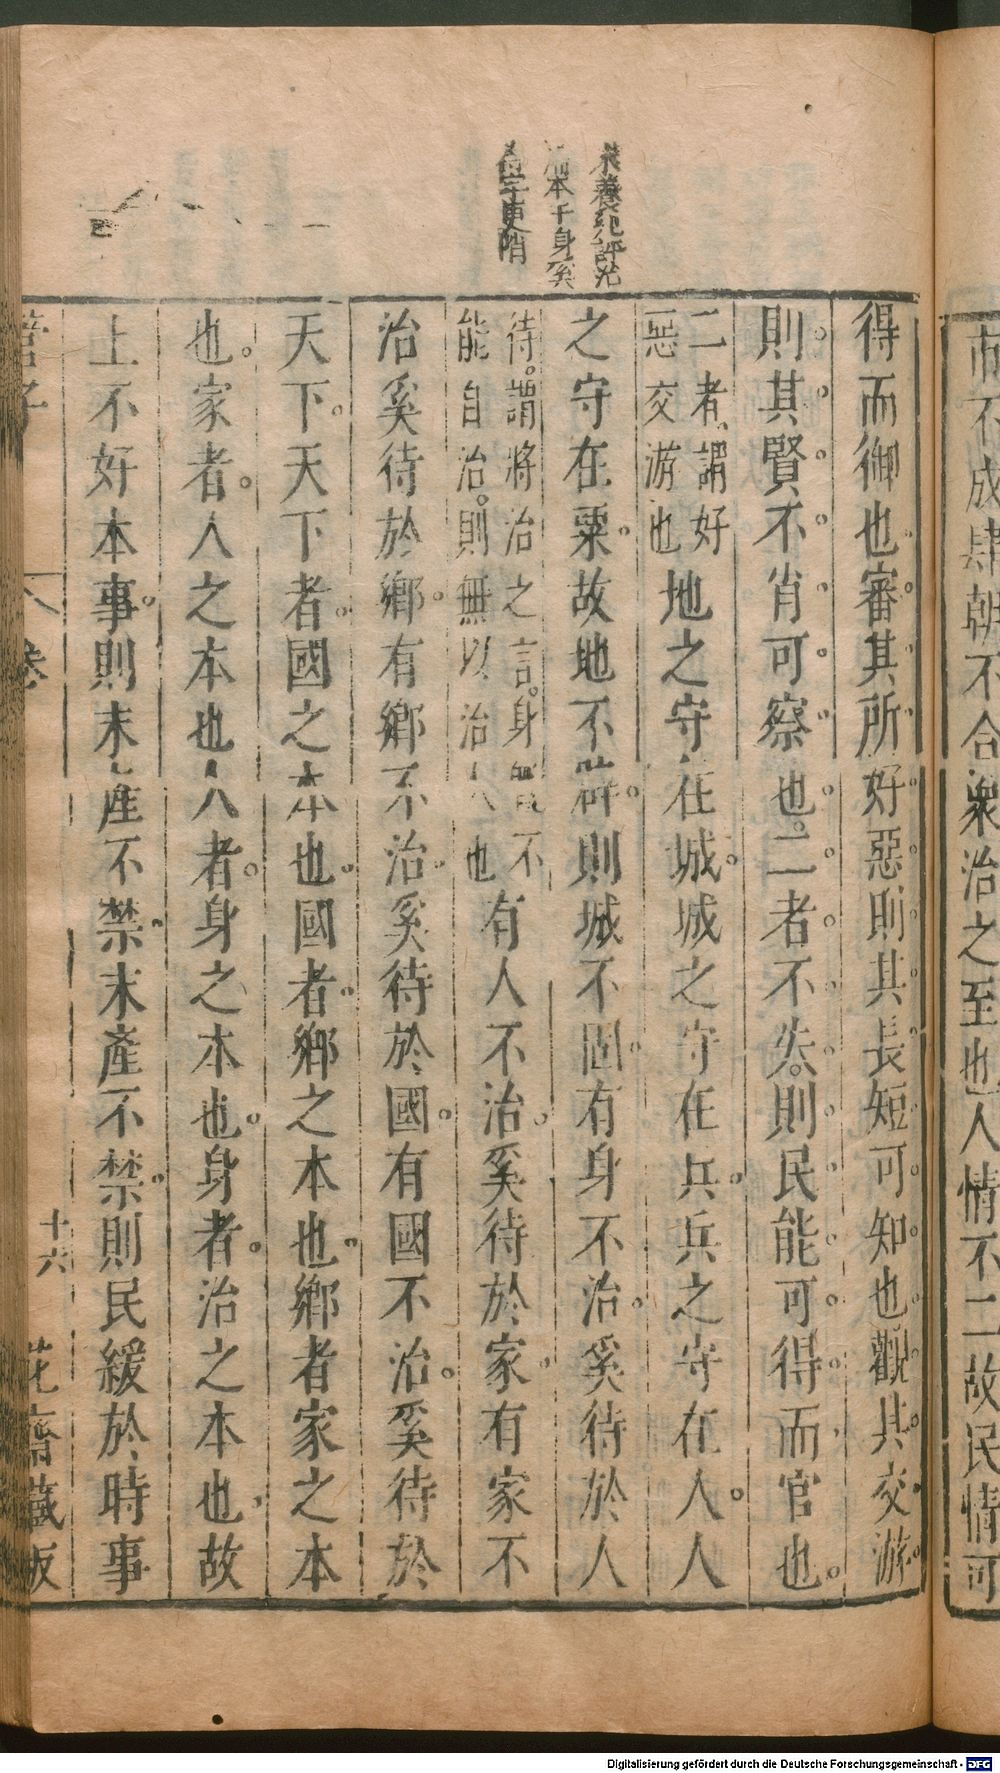 市不成肆朝不合衆治之至也人情不二故民情可
朱養純評治
治本于身奚
得而御也審其所好惡則其長短可知也觀其交游
則其賢不肖可察也二者不失則民能可得而官也
二者謂好
惡交游也
地之守在城城之守在兵兵之守在人人
之守在粟故地不辟則城不固有身不治奚待於人
待謂將治之言身既不
能自治則無以治人也
有人不治奚待於家有家不
治奚待於鄉有鄉不治奚待於國有國不治奚待於
天下天下者國之本也國者鄉之本也鄉者家之本
也家者人之本也人者身之本也身者治之本也故
上不好本事則末產不禁末產不禁則民緩於時事
管子
卷
十六
花齋藏板
Digitalisierung gefördert durch die Deutsche Forschungsgemeinschaft - DFG